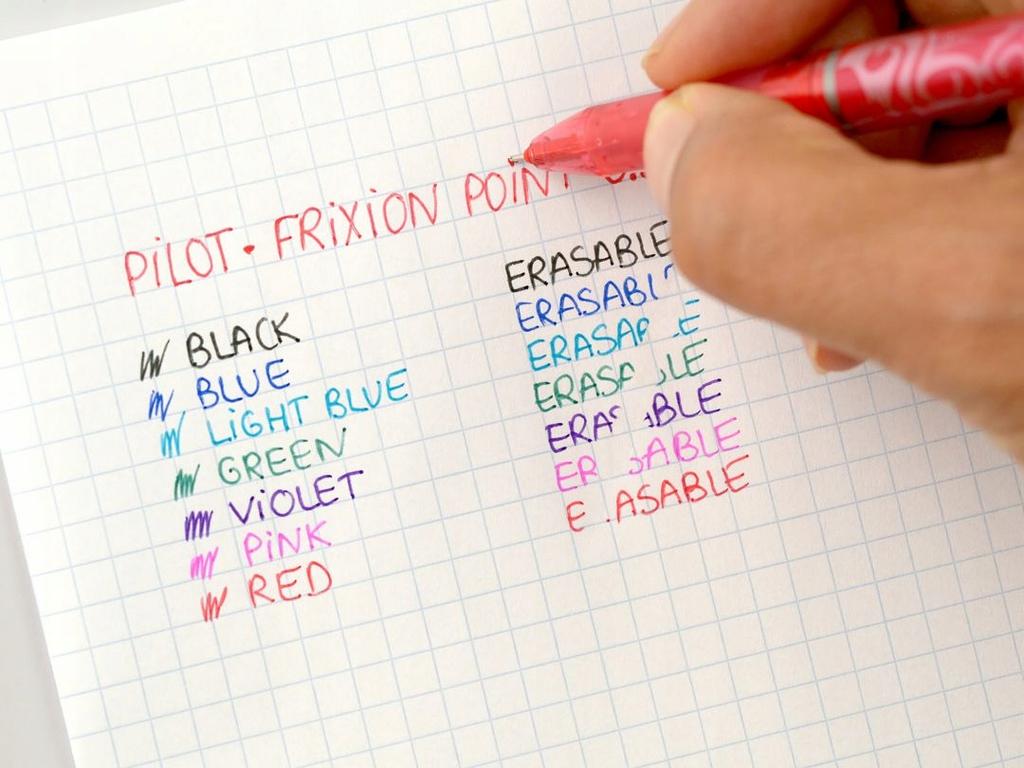 PiLOT • FRiXiON POiNT
BLACK
BLUE
LiGHT BLUE
GREEN
ViOLET
PiNK
RED
ERASABLE
ERASABL
ERASAB E
ERASA LE
ERA BLE
ER ABLE
E ASABLE